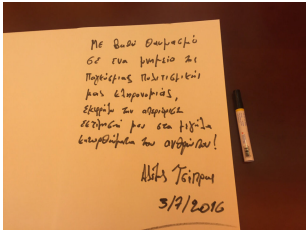 Με βαθύ θαυμασμό
σε ένα μνημείο της
Παγκόσμιας Πολιτισμικής
μας κληρονομιάς,
εκφράζω την απεριόριστη
εκτίμησή μου στα μεγάλα
επιτεύγματα του ανθρώπου!
Αλέξης Τσίπρας
3/7/2016